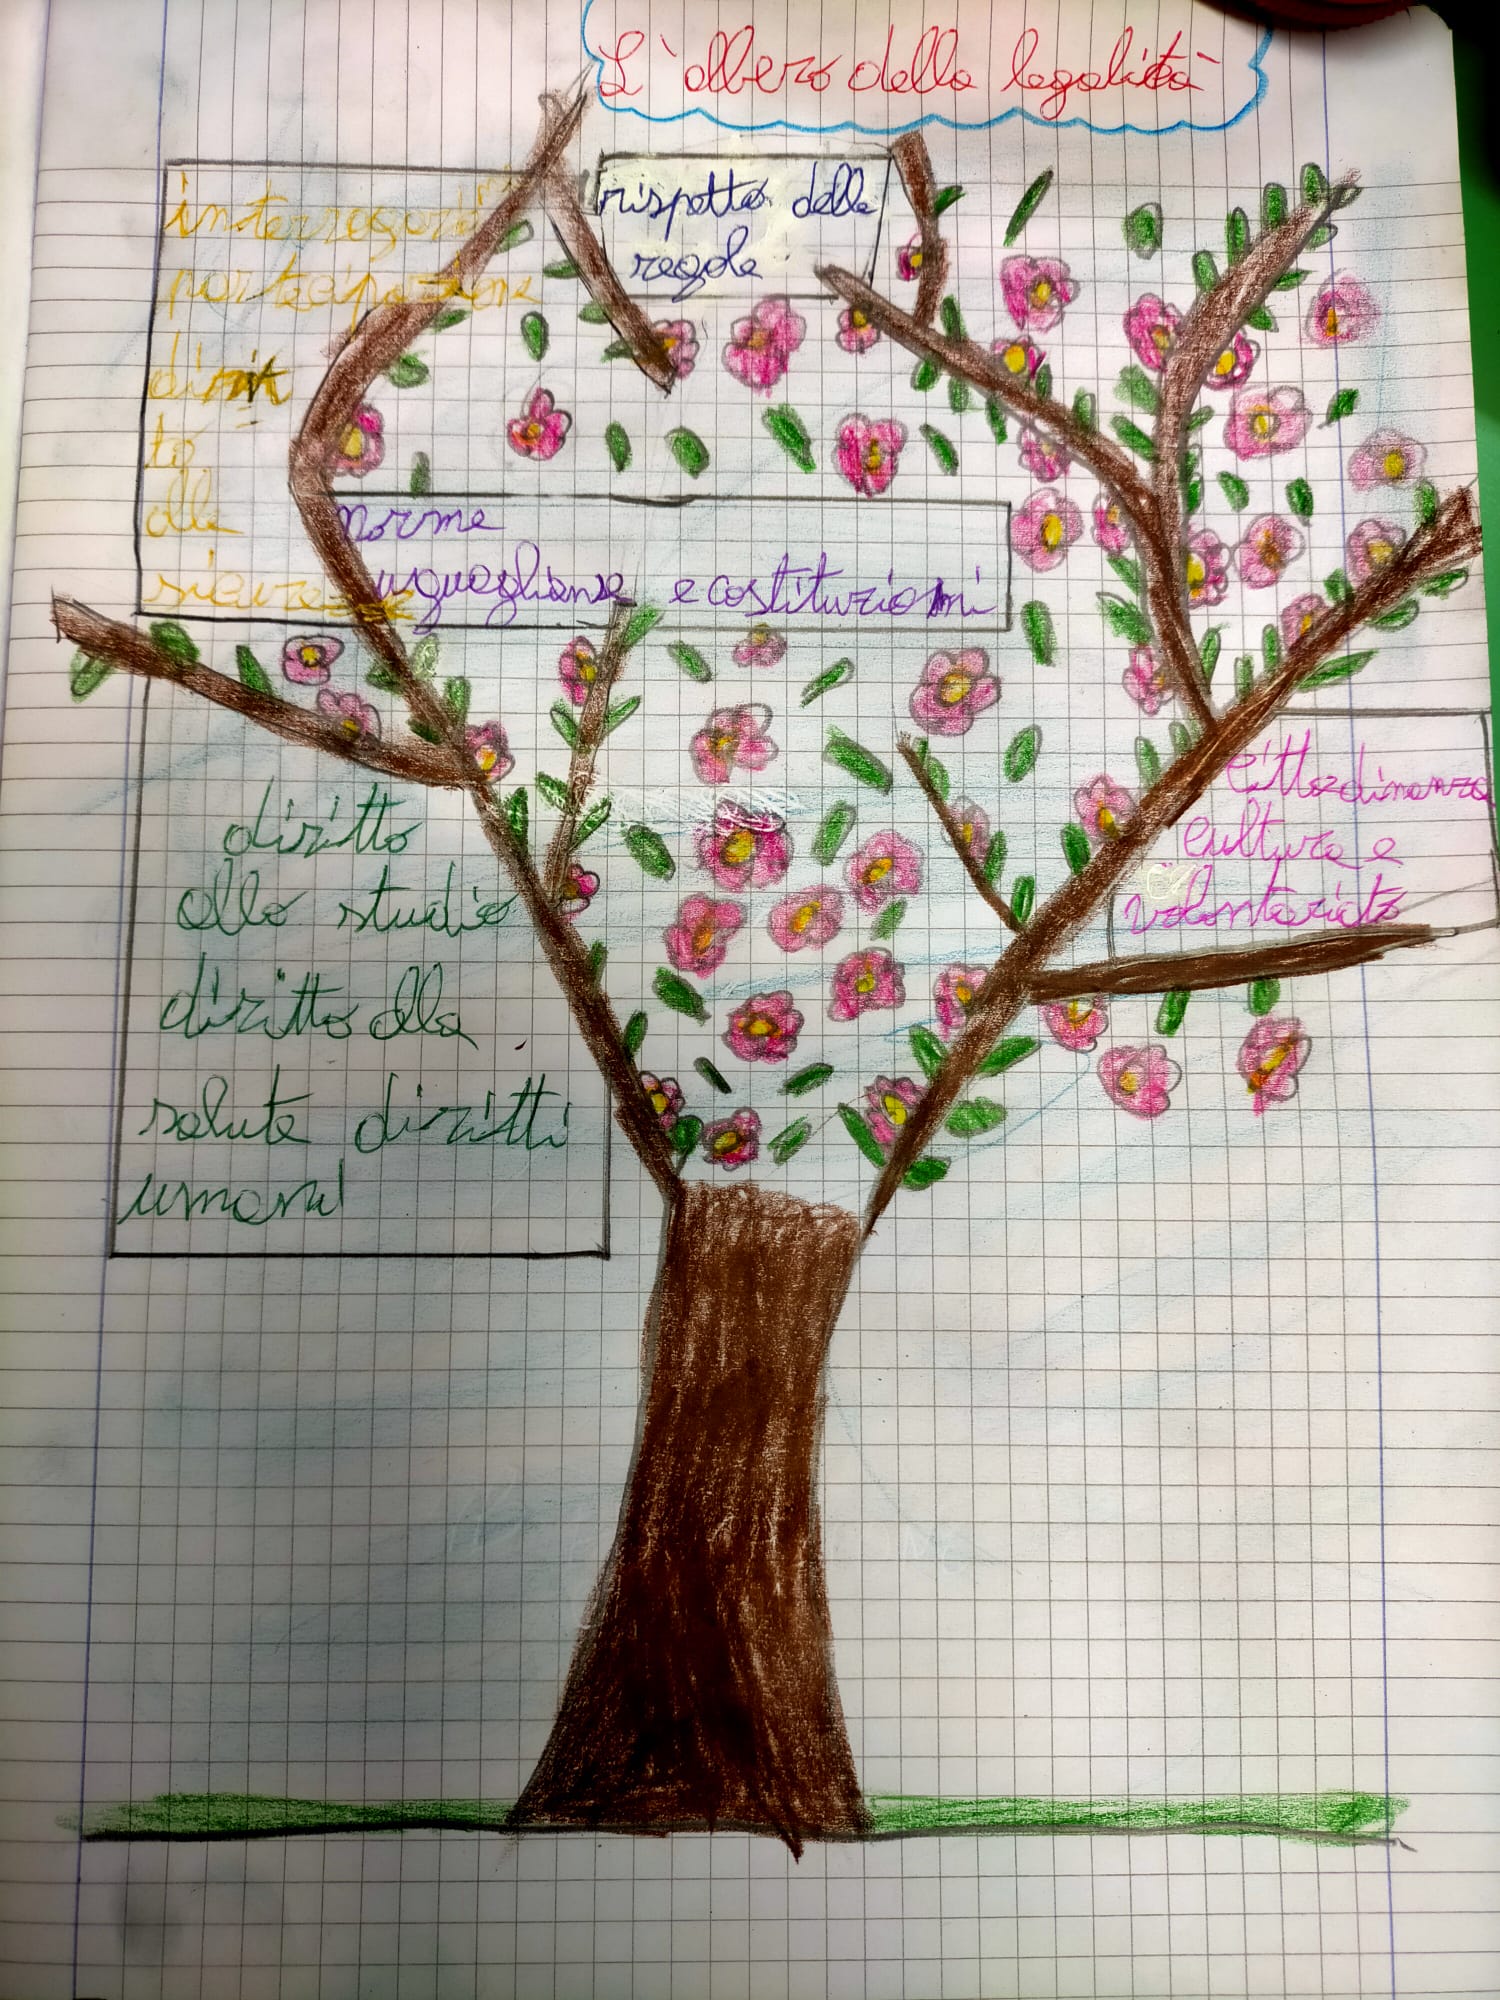 L'albero della legalità
rispetto delle
regole
partecipazione
dirit
to
alla
sicurezza
norme
uguaglianze e costituzioni
cittadinanza
cultura e
volontariato
diritto
allo studio
diritto alla
salute diritti
umani